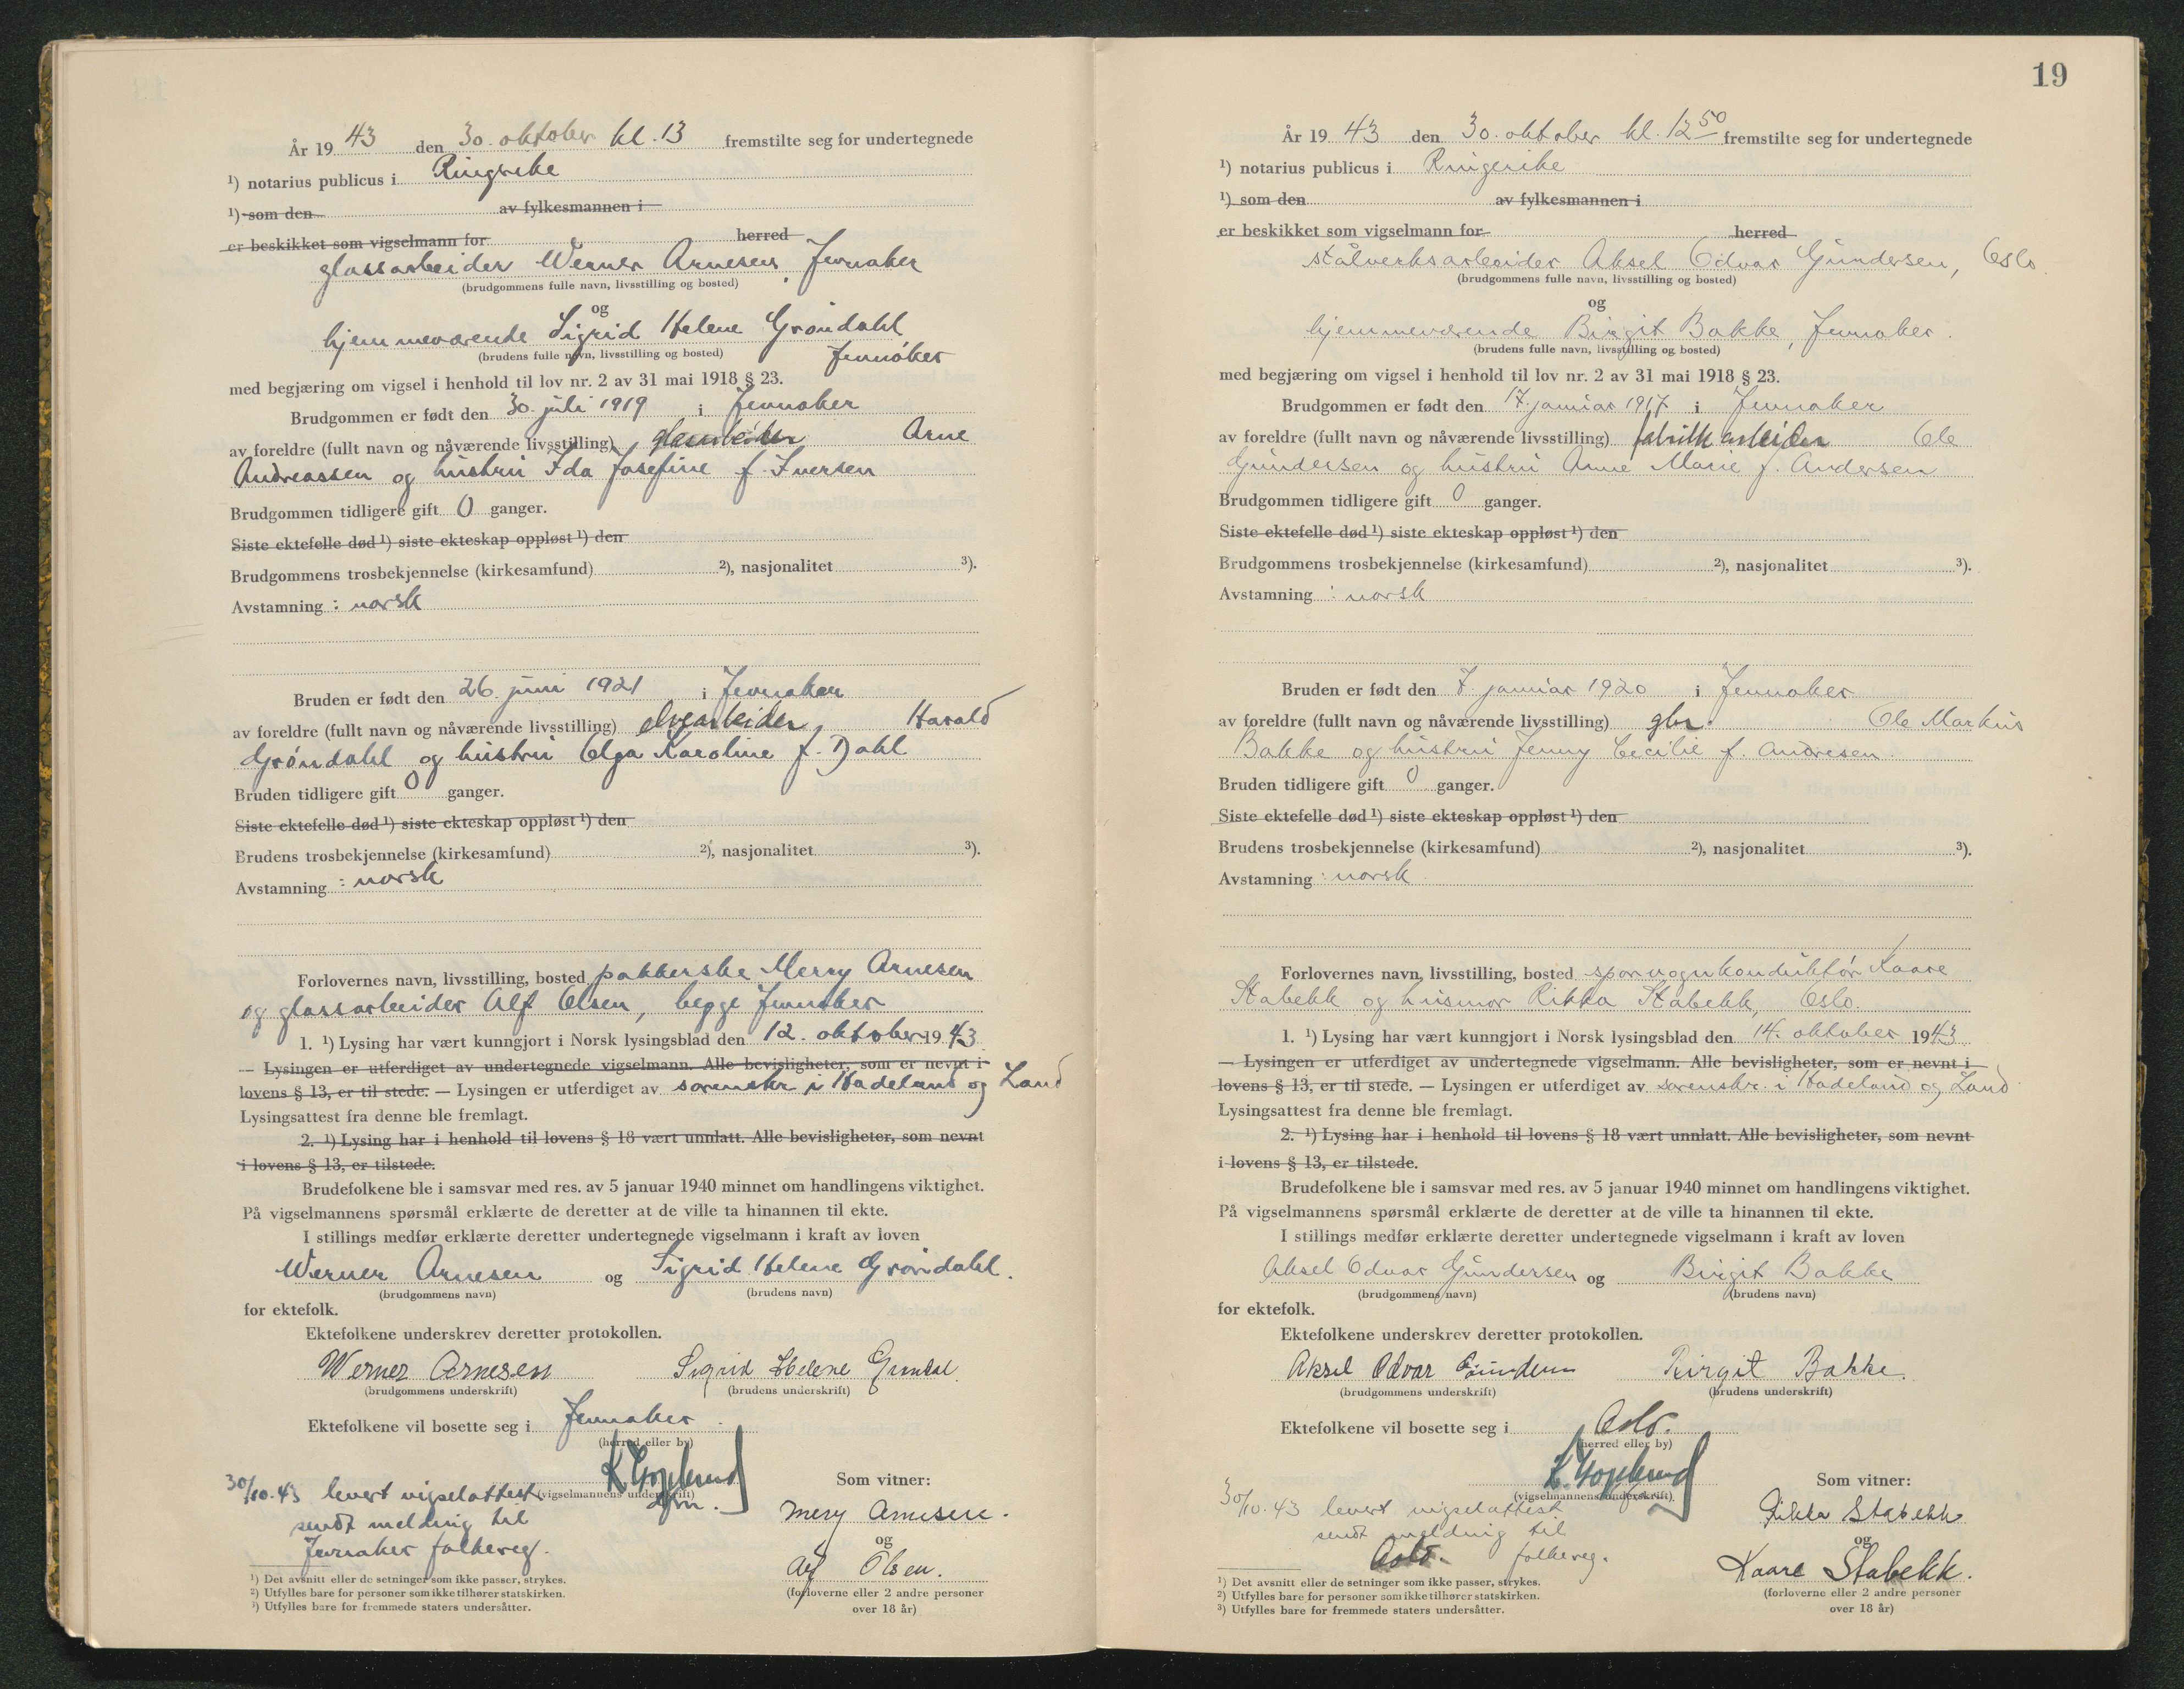 År 19 43 den 30. oktober kl. 13 fremstilte seg for undertegnede
¹) notarius publicus i Ringerike
¹) som den av fylkesmannen i
er beskikket som vigselmann for herred
glassarbeider Werner Arnesen, Jevnaker
(brudgommens fulle navn, livsstilling og bosted)
og
hjemmeværende Sigrid Helene Grøndahl
(brudens fulle navn, livsstilling og bosted) Jevnaker
med begjæring om vigsel i henhold til lov nr. 2 av 31 mai 1918 § 23.
Brudgommen er født den 30. juli 1919 i Jevnaker
av foreldre (fullt navn og nåværende livsstilling) glasarbeider Arne
Andreassen og hustru Ida Josefine f. Iversen
Brudgommen tidligere gift 0 ganger.
Siste ektefelle død ¹) siste ekteskap oppløst ¹) den
Brudgommens trosbekjennelse (kirkesamfund) ²), nasjonalitet ³).
Avstamning : norsk
Bruden er født den 26. juni 1921 i Jevnaker
av foreldre (fullt navn og nåværende livsstilling) elvearbeider Harald
Grøndahl og hustru Olga Karoline f. Dahl
Bruden tidligere gift 0 ganger.
Siste ektefelle død ¹) siste ekteskap oppløst ¹) den
Brudens trosbekjennelse (kirkesamfund) ²), nasjonalitet ³).
Avstamning : norsk
Forlovernes navn, livsstilling, bosted pakkerske Merry Arnesen
og glassarbeider Alf Olsen, begge Jevnaker
1. ¹) Lysing har vært kunngjort i Norsk lysingsblad den 12. oktober 19 43
— Lysingen er utferdiget av undertegnede vigselmann. Alle bevisligheter, som er nevnt i
lovens § 13, er til stede. — Lysingen er utferdiget av sorenskr. i Hadeland og Land
Lysingsattest fra denne ble fremlagt.
2. ¹) Lysing har i henhold til lovens § 18 vært unnlatt. Alle bevisligheter, som nevnt
i lovens § 13, er tilstede.
Brudefolkene ble i samsvar med res. av 5 januar 1940 minnet om handlingens viktighet.
På vigselmannens spørsmål erklærte de deretter at de ville ta hinannen til ekte.
I stillings medfør erklærte deretter undertegnede vigselmann i kraft av loven
Werner Arnesen og Sigrid Helene Grøndahl.
(brudgommens navn) (brudens navn)
for ektefolk.
Ektefolkene underskrev deretter protokollen.
Werner Arnesen Sigrid Helene Grøndal
(brudgommens underskrift) (brudens underskrift)
Ektefolkene vil bosette seg i Jevnaker.
(herred eller by)
30/10.43 levert vigselattest (vigselmannens underskrift) Som vitner:
sendt melding til Mery Arnesen.
Jevnaker folkereg. og
Alf Olsen.
¹) Det avsnitt eller de setninger som ikke passer, strykes.
²) Utfylles bare for personer som ikke tilhører statskirken. (forloverne eller 2 andre personer
³) Utfylles bare for fremmede staters undersåtter. over 18 år)
19
År 19 43 den 30. oktober kl. 12 50 fremstilte seg for undertegnede
¹) notarius publicus i Ringerike
¹) som den av fylkesmannen i
er beskikket som vigselmann for herred
stålverksarbeider Aksel Odvar Gundersen, Oslo.
(brudgommens fulle navn, livsstilling og bosted)
og
hjemmeværende Birgit Bakke, Jevnaker.
(brudens fulle navn, livsstilling og bosted)
med begjæring om vigsel i henhold til lov nr. 2 av 31 mai 1918 § 23.
Brudgommen er født den 17. januar 1917 i Jevnaker
av foreldre (fullt navn og nåværende livsstilling) fabrikkarbeider Ole
Gundersen og hustru Anne Marie f. Andersen
Brudgommen tidligere gift 0 ganger.
Siste ektefelle død ¹) siste ekteskap oppløst ¹) den
Brudgommens trosbekjennelse (kirkesamfund) ²), nasjonalitet ³).
Avstamning : norsk
Bruden er født den 7. januar 1920 i Jevnaker
av foreldre (fullt navn og nåværende livsstilling) gbr. Ole Markus
Bakke og hustru Jenny Cecilie f. Andresen.
Bruden tidligere gift 0 ganger.
Siste ektefelle død ¹) siste ekteskap oppløst ¹) den
Brudens trosbekjennelse (kirkesamfund) ²), nasjonalitet ³).
Avstamning : norsk.
Forlovernes navn, livsstilling, bosted sporvognkonduktør Kaare
Stabekk og husmor Rikka Stabekk, Oslo.
1. ¹) Lysing har vært kunngjort i Norsk lysingsblad den 14. oktober 19 43
— Lysingen er utferdiget av undertegnede vigselmann. Alle bevisligheter, som er nevnt i
lovens § 13, er til stede. — Lysingen er utferdiget av sorenskr. i Hadeland og Land
Lysingsattest fra denne ble fremlagt.
2. ¹) Lysing har i henhold til lovens § 18 vært unnlatt. Alle bevisligheter, som nevnt
i lovens § 13, er tilstede.
Brudefolkene ble i samsvar med res. av 5 januar 1940 minnet om handlingens viktighet.
På vigselmannens spørsmål erklærte de deretter at de ville ta hinannen til ekte.
I stillings medfør erklærte deretter undertegnede vigselmann i kraft av loven
Aksel Odvar Gundersen og Birgit Bakke
(brudgommens navn) (brudens navn)
for ektefolk.
Ektefolkene underskrev deretter protokollen.
Aksel Odvar Gundersen Birgit Bakke.
(brudgommens underskrift) (brudens underskrift)
Ektefolkene vil bosette seg i Oslo.
(herred eller by)
Som vitner:
(vigselmannens underskrift)
30/10.43 levert vigselattest Rikka Stabekk
sendt melding til og
Oslo. folkereg. Kaare Stabekk.
¹) Det avsnitt eller de setninger som ikke passer, strykes.
²) Utfylles bare for personer som ikke tilhører statskirken. (forloverne eller 2 andre personer
³) Utfylles bare for fremmede staters undersåtter. over 18 år)